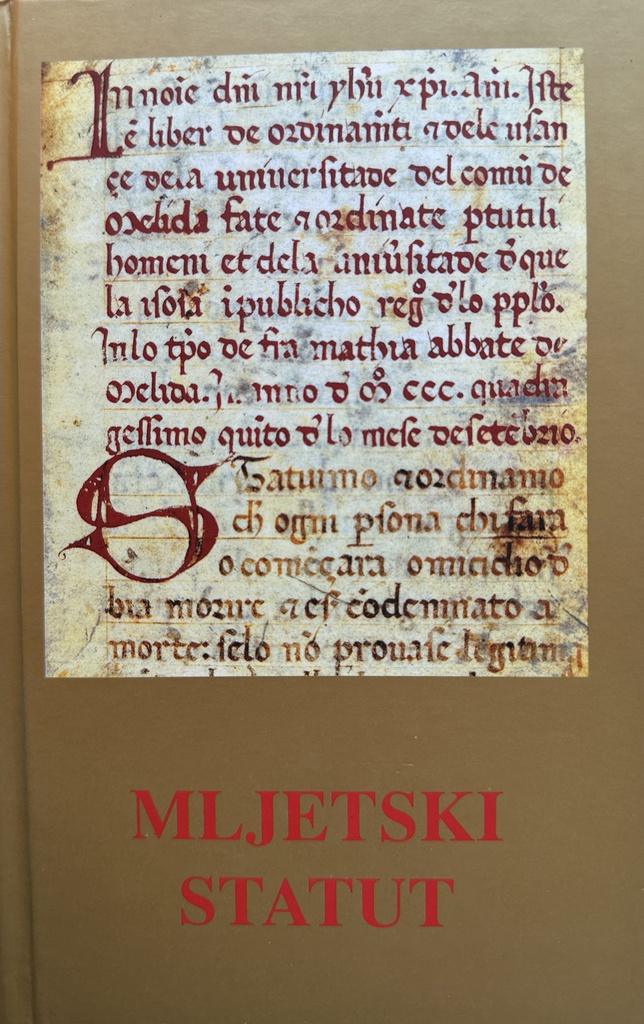 In noíe dñi nr̃i yhũ xp̃i. Am̃. Iste
ẽ liber de ordinam̃ti ⁊ dele usan
çe dela uniuersitade del comũ de
Melida fate ⁊ ordinate ꝑ tuti li
homeni et dela uniũsitade đ que
la isola ĩ publicho reg̃ đlo pplõ.
In lo tp̃o de fra mathia abbate de
Melida. In anno đ M̃ CCC. quadra
gessimo quĩto đ lo mese de setẽbrio.
Statuimo ⁊ ordinamo
ch̃ ogni ꝑsona chi fara
o començara omicidio đ
bia morire ⁊ esẽ cõdemnato a
morte: se lo nõ prouase legitim
MLJETSKI
STATUT